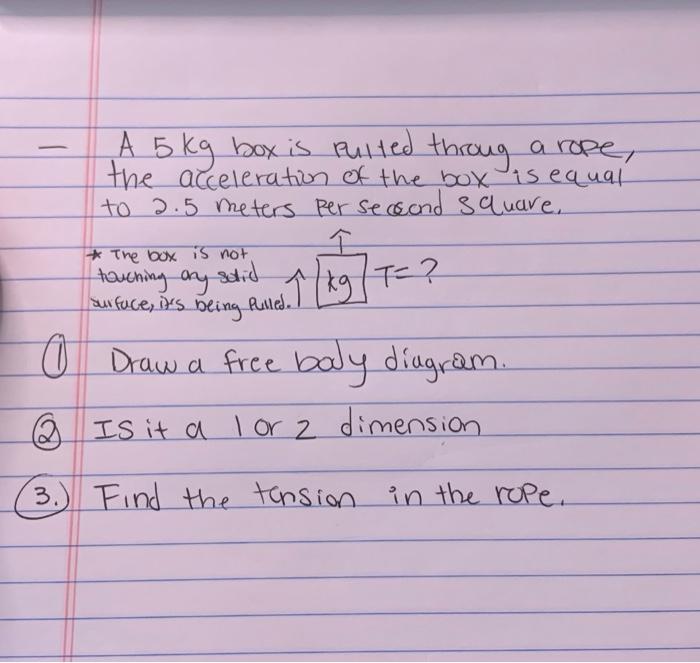 — A 5 kg box is pulled throug a rope,
the acceleration of the box is equal
to 2.5 meters per second square.
* The box is not
touching any solid
surface, it's being pulled.
kg T= ?
① Draw a free body diagram.
② Is it a 1 or 2 dimension
3.) Find the tension in the rope.